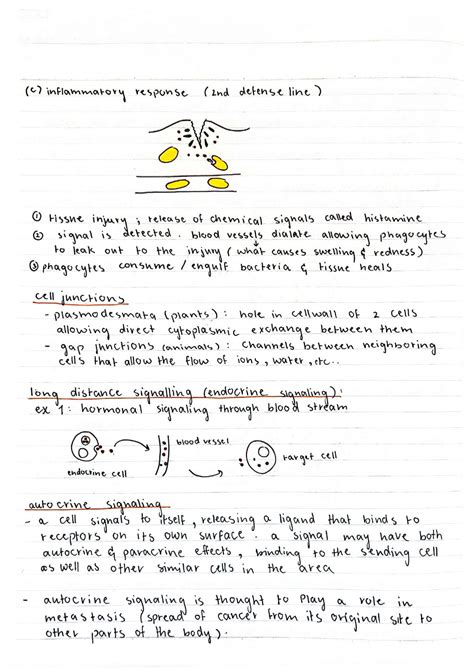 (c) inflammatory response (2nd defense line)
① tissue injury ; release of chemical signals called histamine
② signal is detected. blood vessels dialate allowing phagocytes
to leak out to the injury (what causes swelling & redness)
③ phagocytes consume / engulf bacteria & tissue heals
cell junctions
- plasmodesmata (plants) : hole in cellwall of 2 cells
allowing direct cytoplasmic exchange between them
- gap junctions (animals) : channels between neighboring
cells that allow the flow of ions, water, etc..
long distance signalling (endocrine signaling) :
ex 1 : hormonal signaling through blood stream
blood vessel
target cell
endocrine cell
autocrine signaling
- a cell signals to itself, releasing a ligand that binds to
receptors on its own surface. a signal may have both
autocrine & paracrine effects, binding to the sending cell
as well as other similar cells in the area
- autocrine signaling is thought to play a role in
metastasis (spread of cancer from its original site to
other parts of the body).